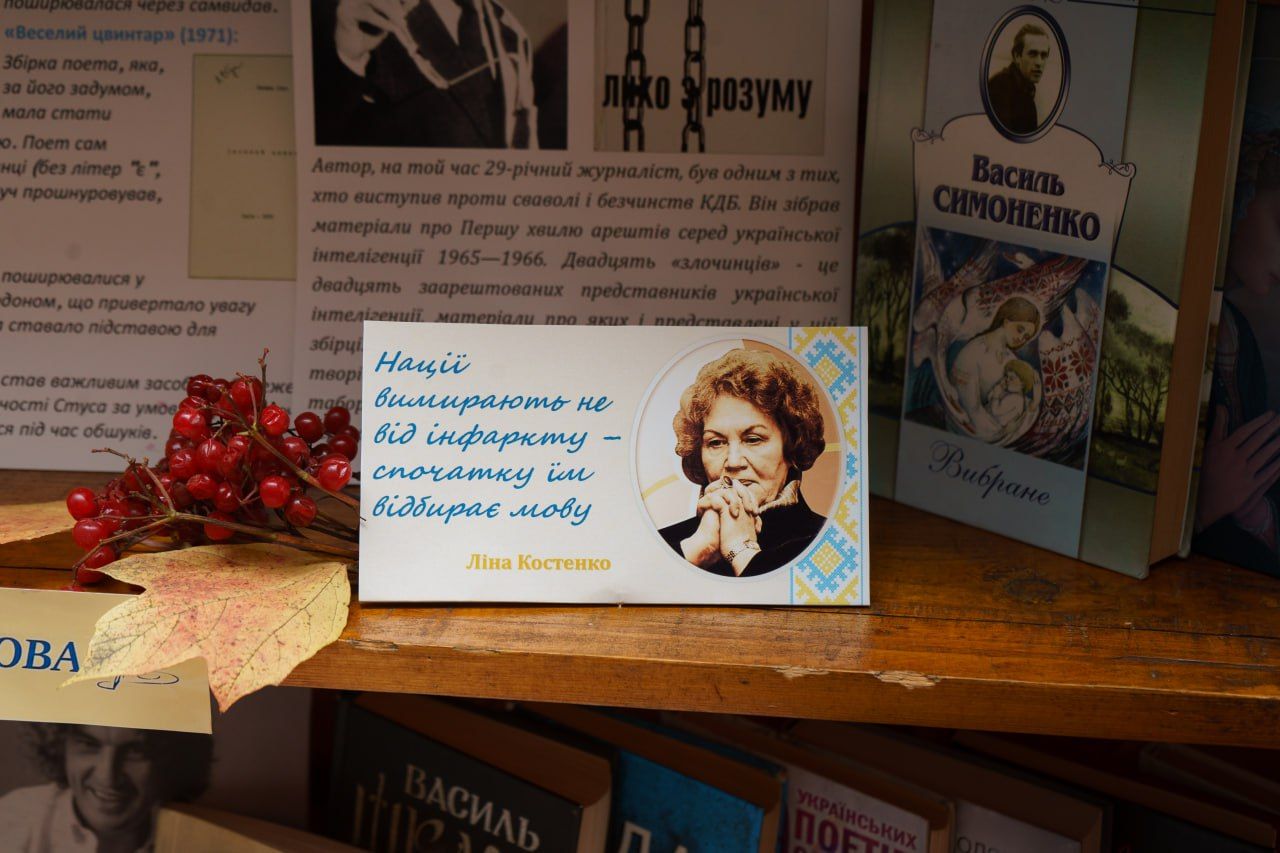 поширювалася через самвидав.
«Веселий цвинтар» (1971):
Збірка поета, яка,
за його задумом,
мала стати
Поет сам
(без літер "є",
прошнуровував,
поширювалися у
що привертало увагу
ставало підставою для
став важливим
Стуса за
ся під час обшуків.
лихо з розуму
Автор, на той час 29-річний журналіст, був одним з тих,
хто виступив проти сваволі і безчинств КДБ. Він зібрав
матеріали про Першу хвилю арештів серед української
інтелігенції 1965—1966. Двадцять «злочинців» - це
двадцять заарештованих представників української
інтелігенції, матеріали про яких і представлені у цій
Василь
СИМОНЕНКО
Вибране
Нації
вимирають не
від інфаркту –
спочатку їм
відбирає мову
Ліна Костенко
ОВА
ВАСИЛЬ
УКРАЇНСЬКИХ